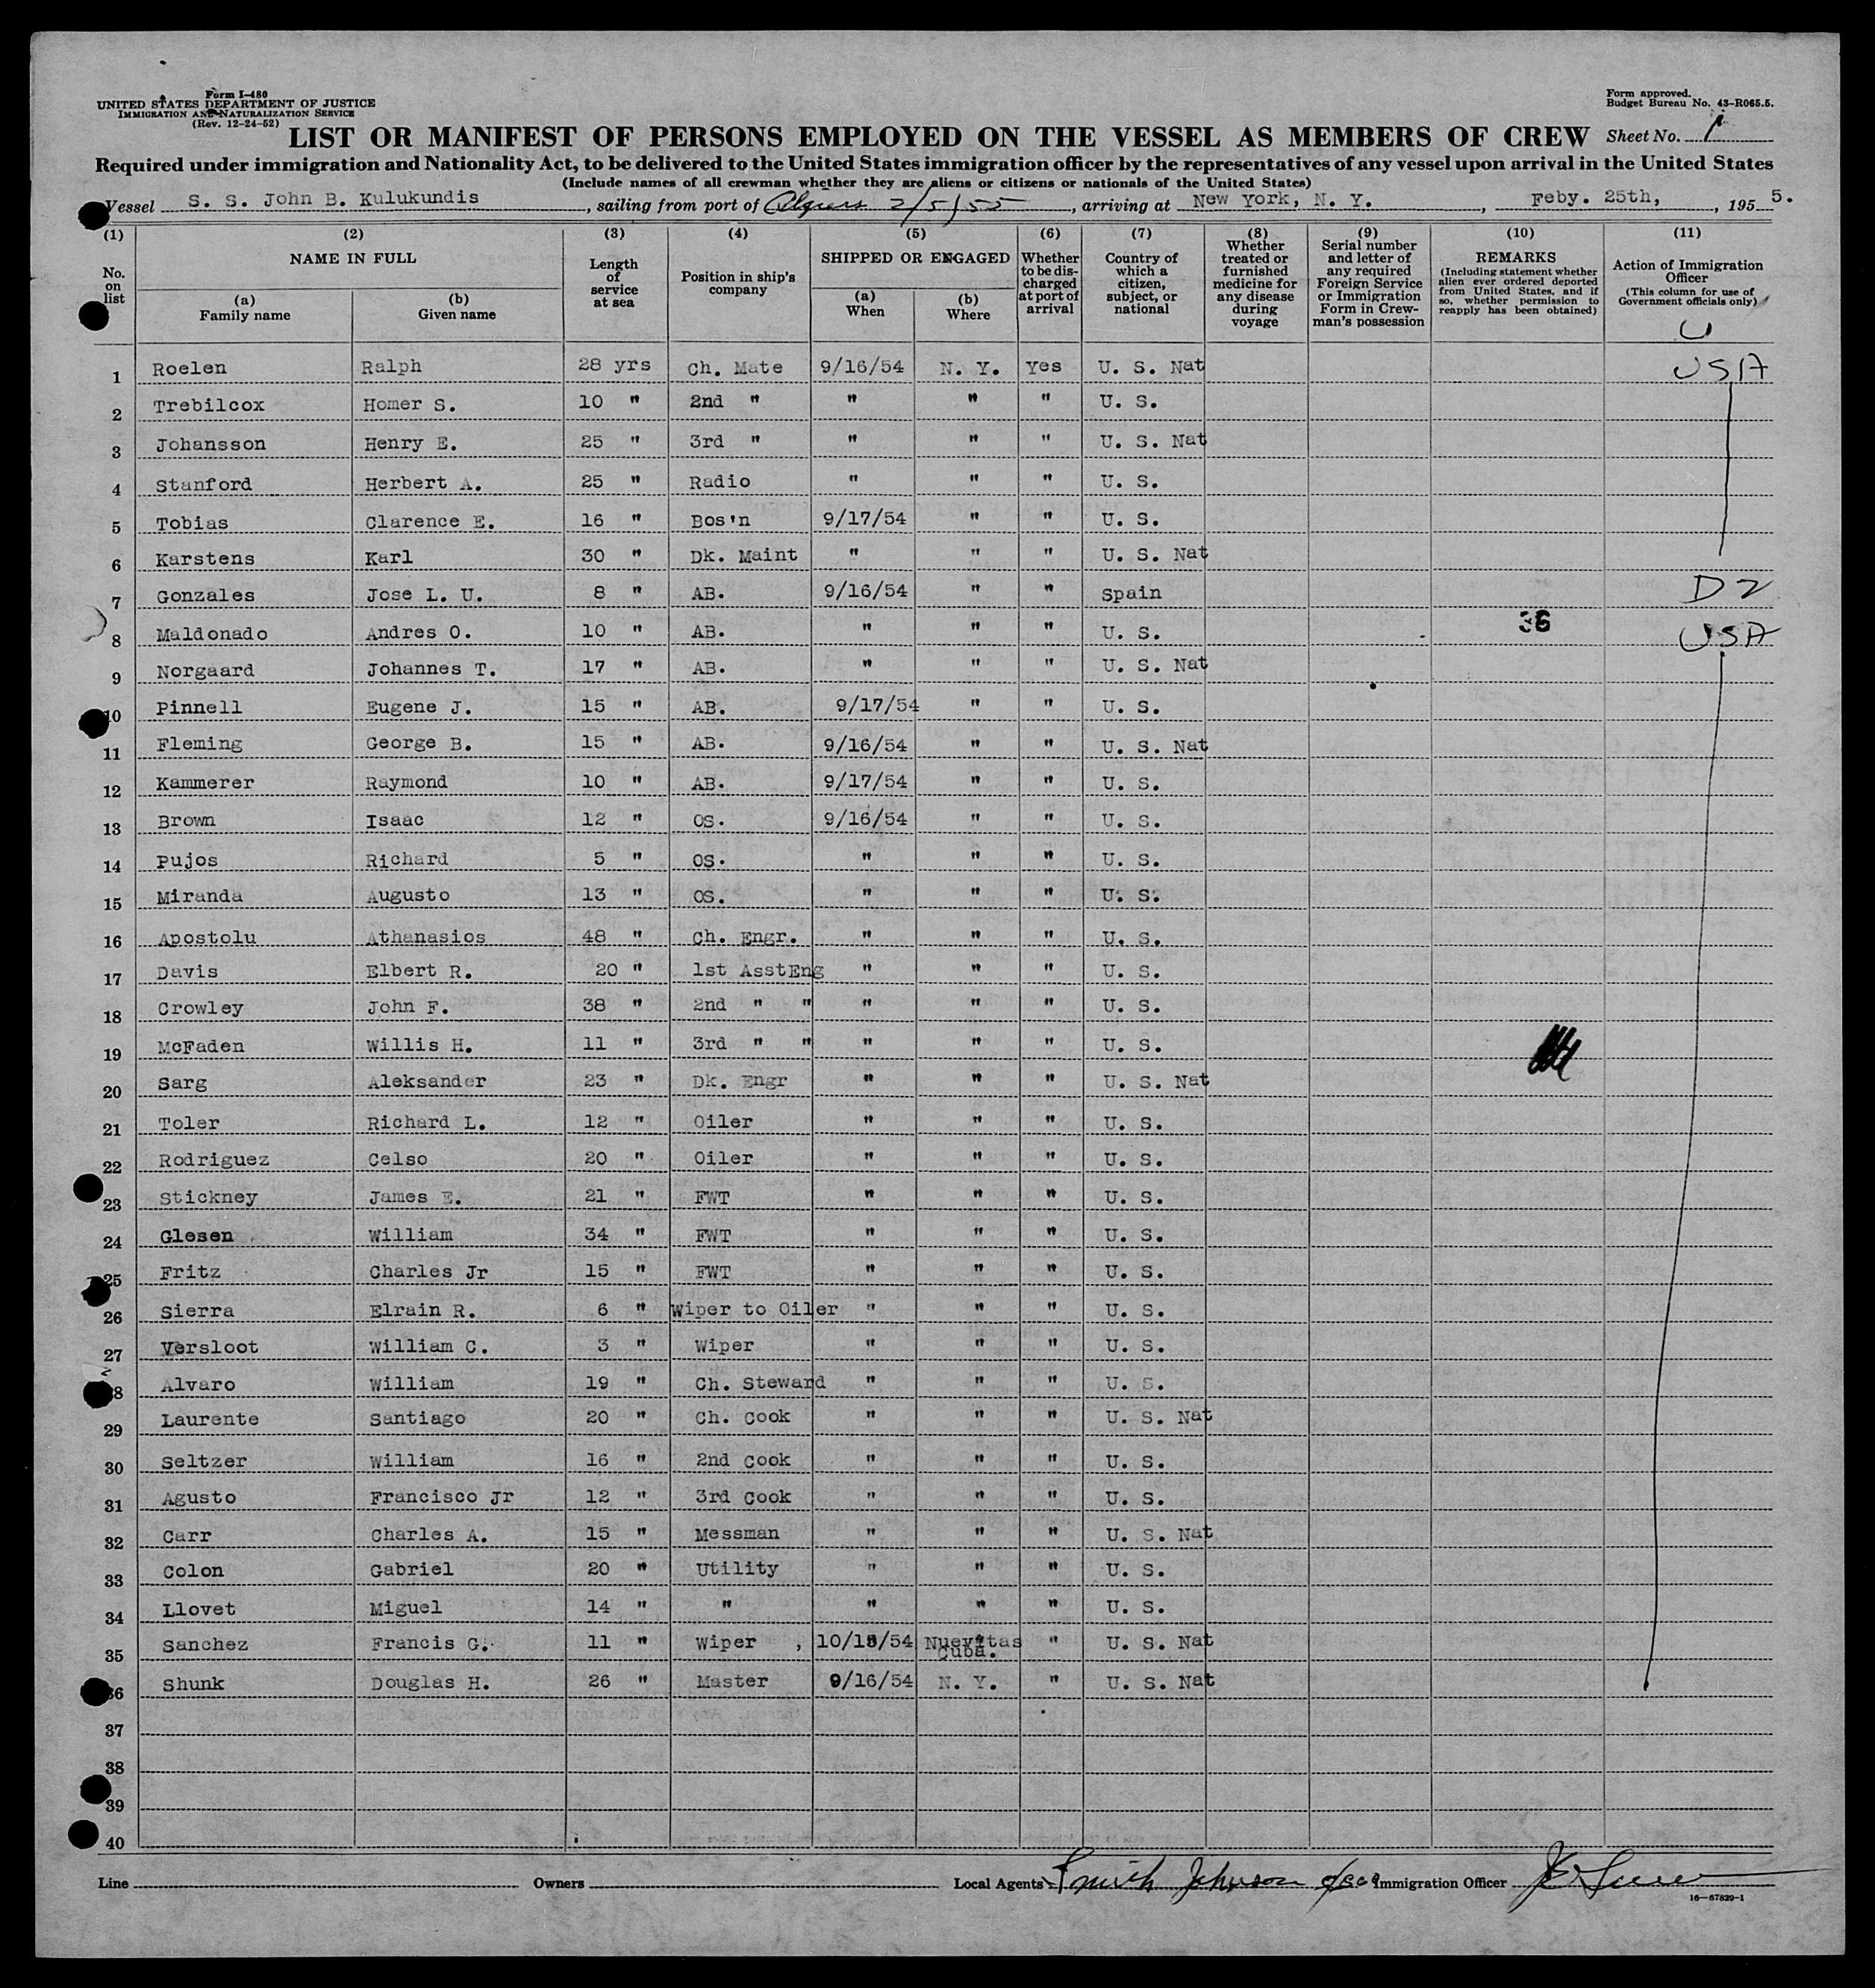 Form I-480
UNITED STATES DEPARTMENT OF JUSTICE
IMMIGRATION AND NATURALIZATION SERVICE
(Rev. 12-24-52)
Form approved.
Budget Bureau No. 43-R065.5.
LIST OR MANIFEST OF PERSONS EMPLOYED ON THE VESSEL AS MEMBERS OF CREW Sheet No. 1
Required under immigration and Nationality Act, to be delivered to the United States immigration officer by the representatives of any vessel upon arrival in the United States
(Include names of all crewman whether they are aliens or citizens or nationals of the United States)
Vessel S. S. John B. Kulukundis, sailing from port of Algiers 2/5/55, arriving at New York, N. Y., Feby. 25th, 1955.
(1) (2) (3) (4) (5) (6) (7) (8) (9) (10) (11)
No. on list
NAME IN FULL
(a) Family name
(b) Given name
Length of service at sea
Position in ship's company
SHIPPED OR ENGAGED
(a) When
(b) Where
Whether to be discharged at port of arrival
Country of which a citizen, subject, or national
Whether treated or furnished medicine for any disease during voyage
Serial number and letter of any required Foreign Service or Immigration Form in Crewman's possession
REMARKS
(Including statement whether alien ever ordered deported from United States, and if so, whether permission to reapply has been obtained)
Action of Immigration Officer
(This column for use of Government officials only)
U
1 Roelen Ralph 28 yrs Ch. Mate 9/16/54 N. Y. Yes U. S. Nat USA
2 Trebilcox Homer S. 10 " 2nd " " " " U. S.
3 Johansson Henry E. 25 " 3rd " " " " U. S. Nat
4 Stanford Herbert A. 25 " Radio " " " U. S.
5 Tobias Clarence E. 16 " Bos'n 9/17/54 " " U. S.
6 Karstens Karl 30 " Dk. Maint " " " U. S. Nat
7 Gonzales Jose L. U. 8 " AB. 9/16/54 " " Spain D2
8 Maldonado Andres O. 10 " AB. " " " U. S. 36 USA
9 Norgaard Johannes T. 17 " AB. " " " U. S. Nat
10 Pinnell Eugene J. 15 " AB. 9/17/54 " " U. S.
11 Fleming George B. 15 " AB. 9/16/54 " " U. S. Nat
12 Kammerer Raymond 10 " AB. 9/17/54 " " U. S.
13 Brown Isaac 12 " OS. 9/16/54 " " U. S.
14 Pujos Richard 5 " OS. " " " U. S.
15 Miranda Augusto 13 " OS. " " " U. S.
16 Apostolu Athanasios 48 " Ch. Engr. " " " U. S.
17 Davis Elbert R. 20 " 1st AsstEng " " " U. S.
18 Crowley John F. 38 " 2nd " " " " " U. S.
19 McFaden Willis H. 11 " 3rd " " " " " U. S.
20 Sarg Aleksander 23 " Dk. Engr " " " U. S. Nat
21 Toler Richard L. 12 " Oiler " " " U. S.
22 Rodriguez Celso 20 " Oiler " " " U. S.
23 Stickney James E. 21 " FWT " " " U. S.
24 Glesen William 34 " FWT " " " U. S.
25 Fritz Charles Jr 15 " FWT " " " U. S.
26 Sierra Elrain R. 6 " Wiper to Oiler " " " U. S.
27 Versloot William C. 3 " Wiper " " " U. S.
28 Alvaro William 19 " Ch. Steward " " " U. S.
29 Laurente Santiago 20 " Ch. Cook " " " U. S. Nat
30 Seltzer William 16 " 2nd Cook " " " U. S.
31 Agusto Francisco Jr 12 " 3rd Cook " " " U. S.
32 Carr Charles A. 15 " Messman " " " U. S. Nat
33 Colon Gabriel 20 " Utility " " " U. S.
34 Llovet Miguel 14 " " " " " U. S.
35 Sanchez Francis G. 11 " Wiper , 10/15/54 Nuevitas Cuba. " U. S. Nat
36 Shunk Douglas H. 26 " Master 9/16/54 N. Y. " U. S. Nat
37
38
39
40
Line Owners Local Agents Smith Johnson Immigration Officer
16—67829-1